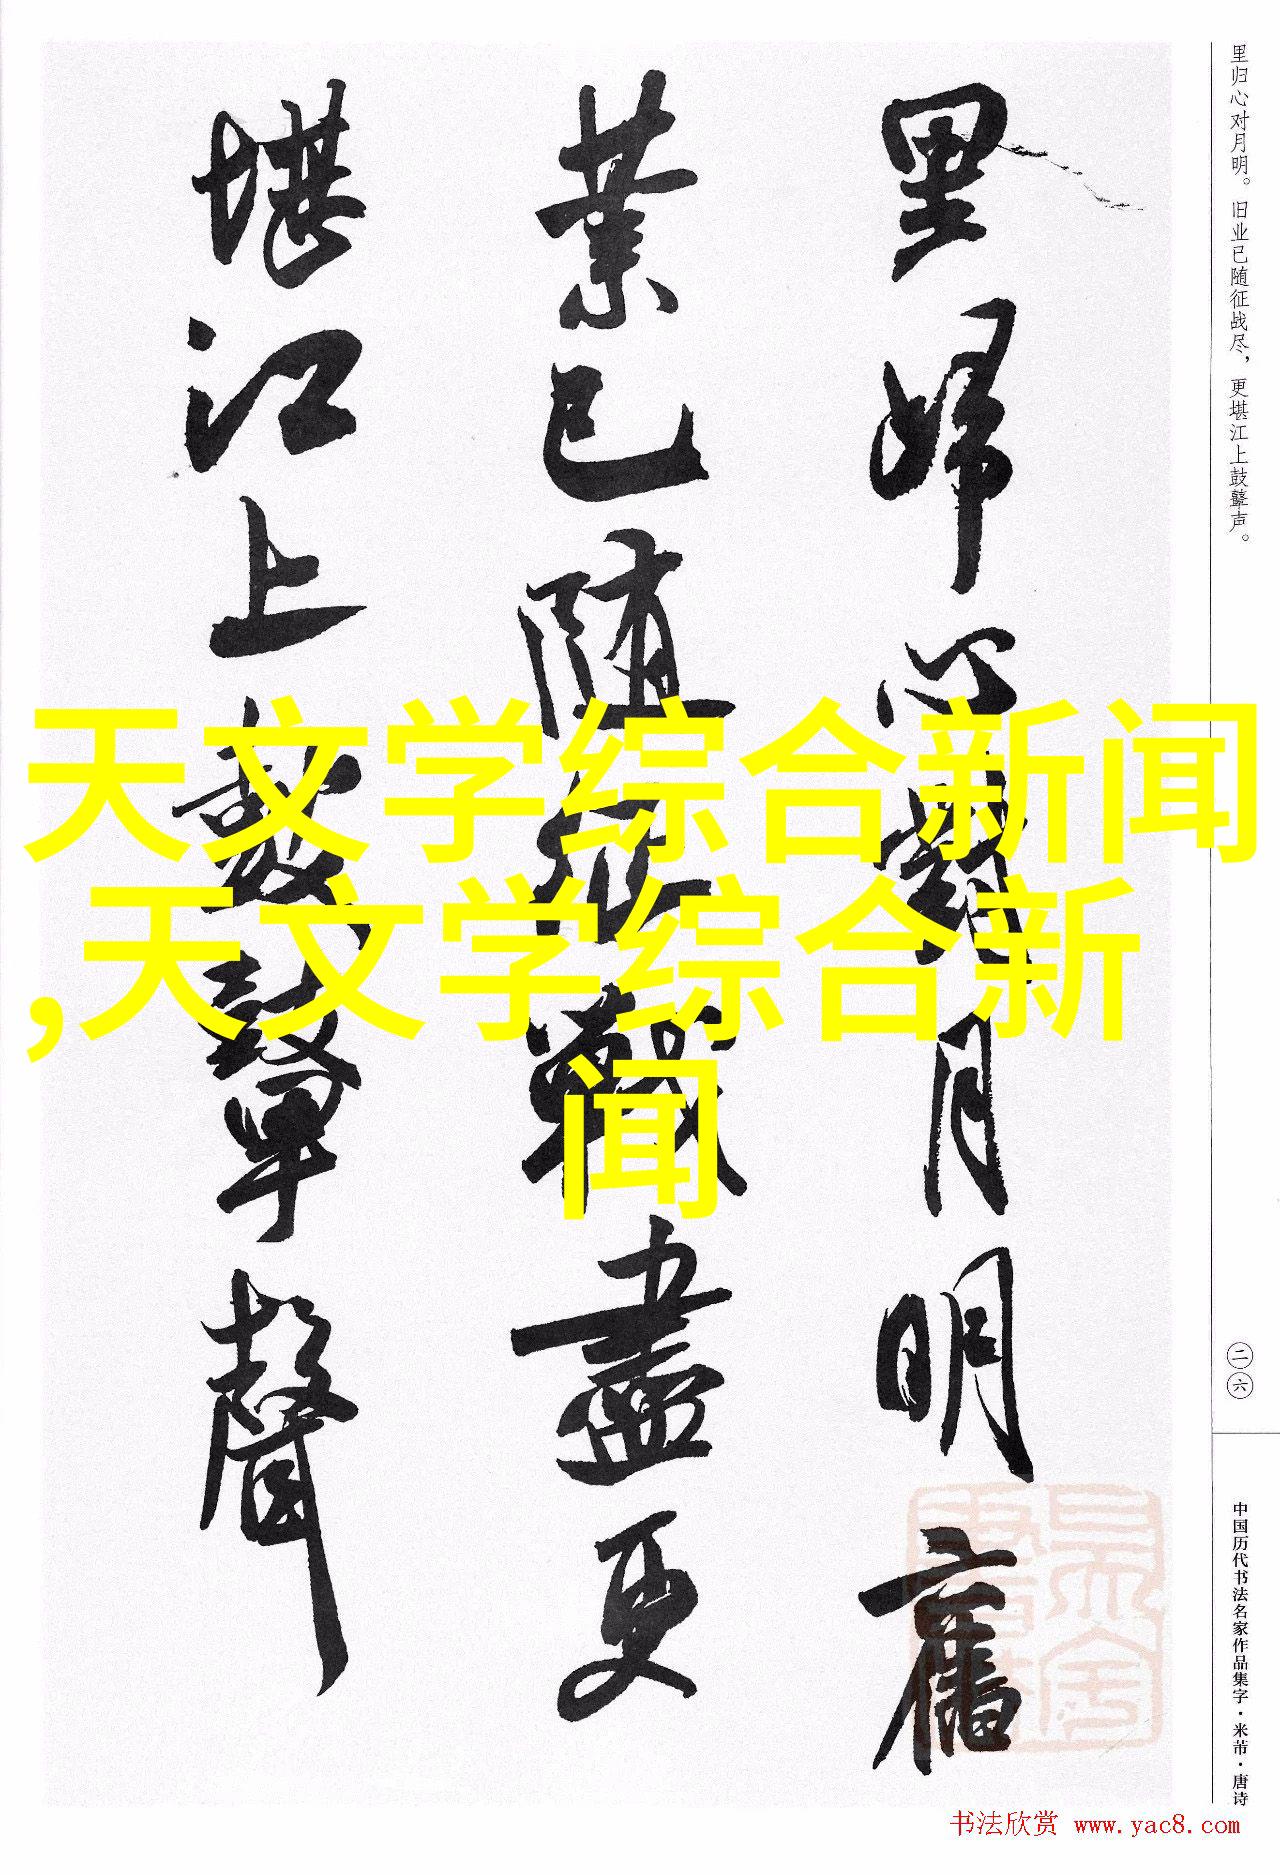 里歸心對月明舊
業已随征戰盡更
堪江上鼓鼙聲
里归心对月明。旧业已随征战尽，更堪江上鼓鼙声。
二六
中国历代书法名家作品集字·米芾·唐诗
天文学综合新闻
,天文学综合新
闻
书法欣赏 www.yac8.com